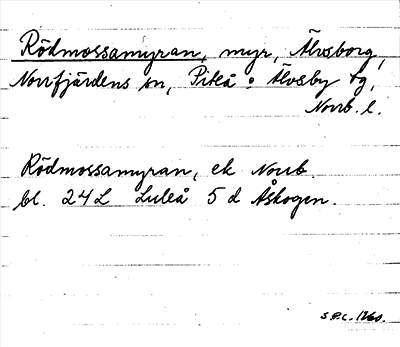 Rödmossamyran, myr, Älvsborg,
Norrfjärdens sn, Piteå o Älvsby tg,
Norrb. l.
Rödmossamyran, ek Norrb.
bl. 24L Luleå 5 d Åskogen.
S.P.C. 1960.